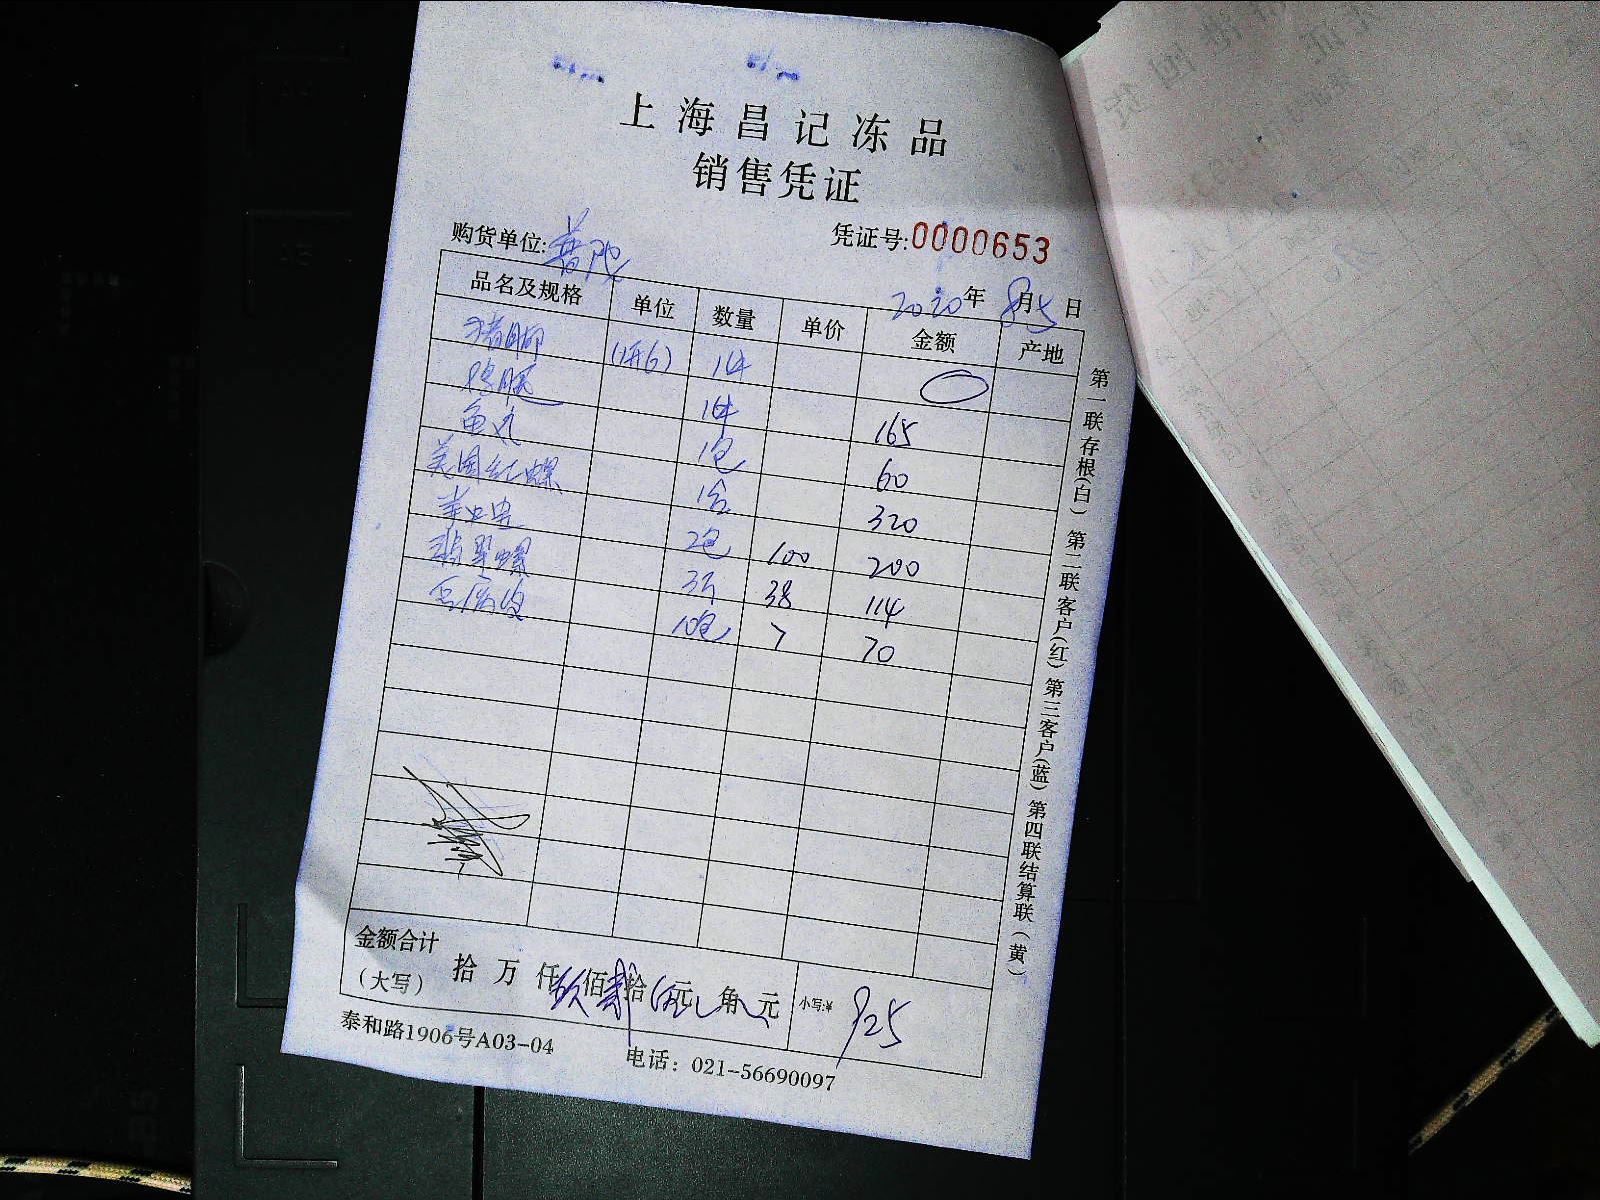 上海昌记冻品
销售凭证
购货单位:普陀 凭证号:0000653
2020年8月5日
品名及规格 单位 数量 单价 金额 产地
猪脚 (1开6) 1件
鸭腿 1件 165
鱼丸 1包 60
美国红螺 1盒 320
2包 100 200
翡翠螺 3斤 38 114
10包 7 70
金额合计
(大写) 拾 万 仟玖佰贰拾伍元 角 元 小写:¥ 925
泰和路1906号A03-04 电话：021-56690097
第一联存根(白) 第二联客户(红) 第三客户(蓝) 第四联结算联(黄)